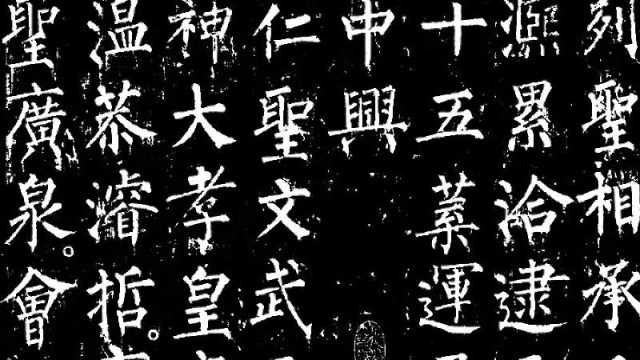 列聖相承
熙累洽逮
十五葉運
中興
仁聖文武
神大孝皇
温恭濬哲。
聖廣泉。會